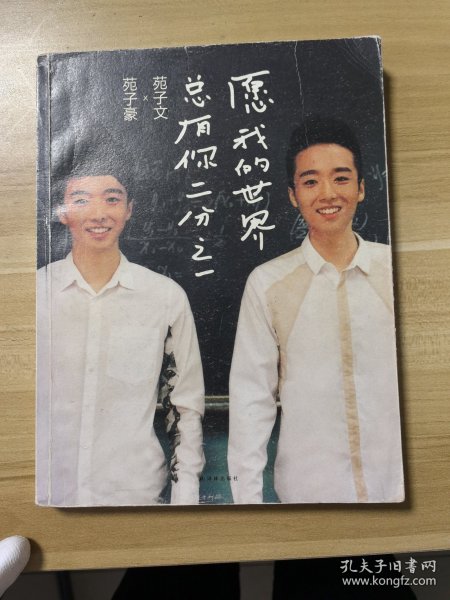 愿我的世界
总有你二分之一
苑子文
×
苑子豪
译林出版社
孔夫子旧书网
www.kongfz.com